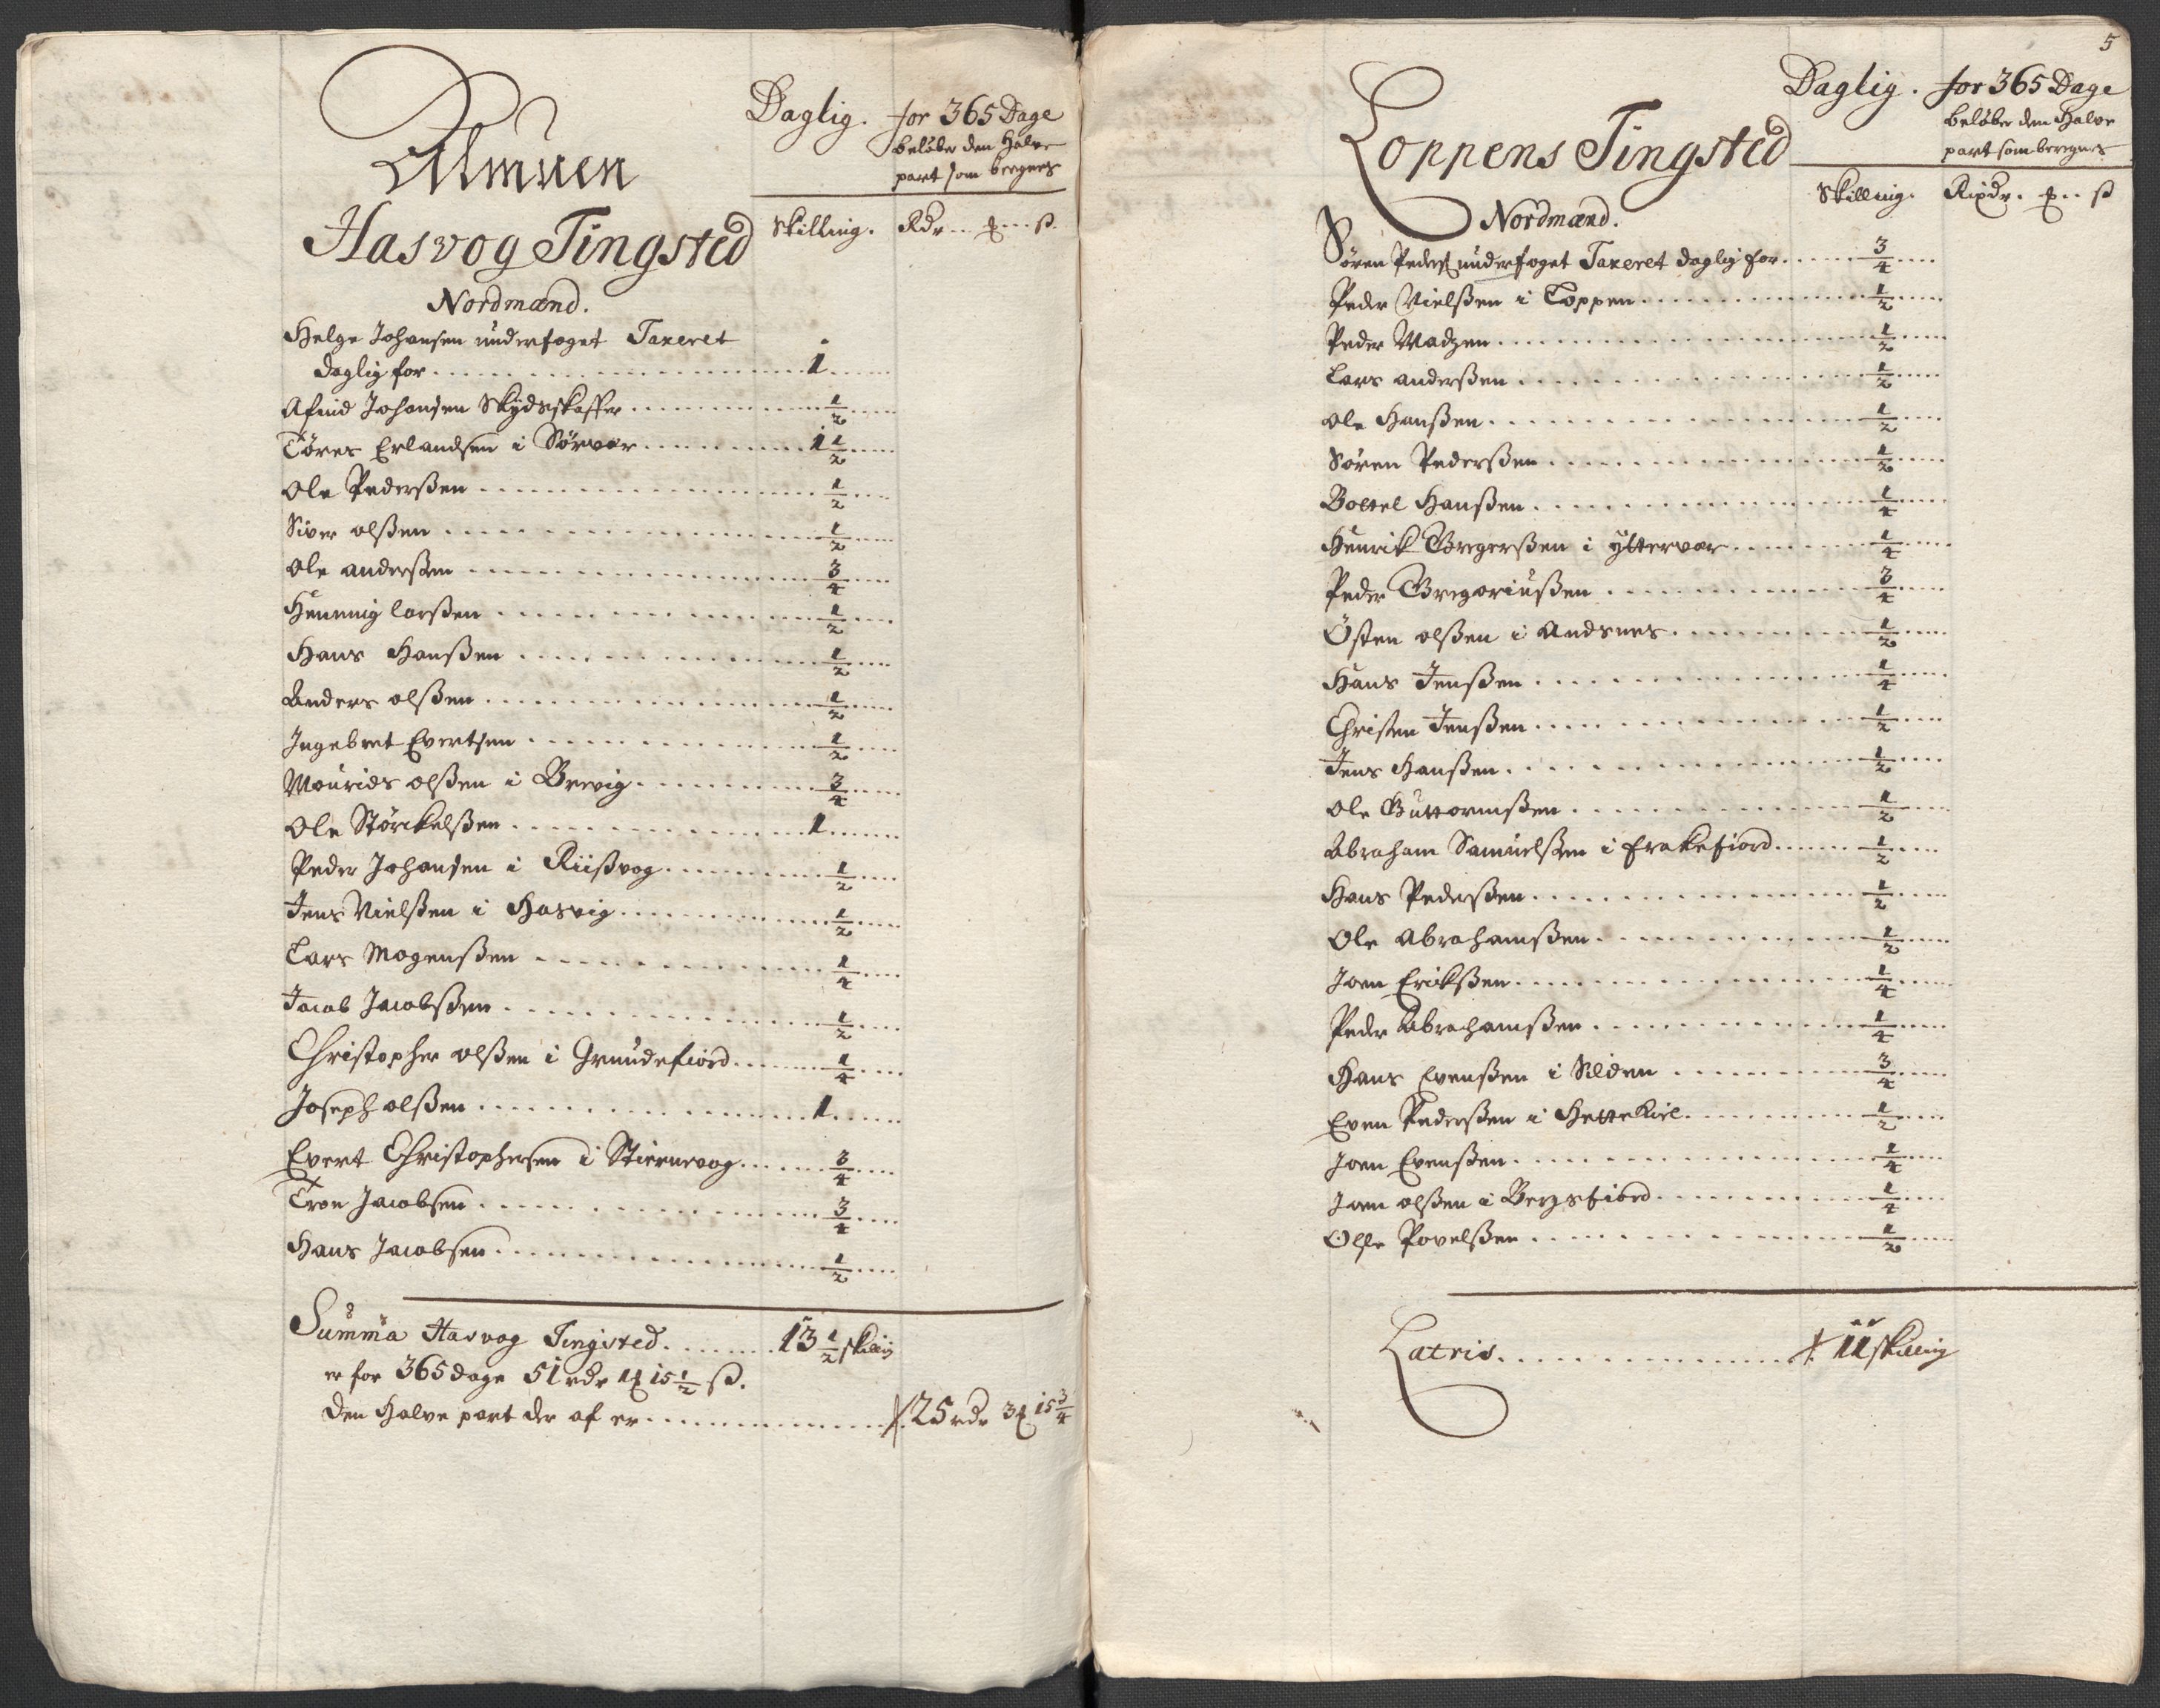 Almuen
Hasvog Tingsted
Nordmænd.
Daglig. for 365 Dage
beløber den Halve
part som beregnes
Skilling. Rdr ... ß.
Helge Johansen underfoget Taxeret
daglig for 1
Afind Johansen Skydsskaffer 1/2
Töres Erlandsen i Sörvær 1 1/2
Ole Pederßen 1/2
Siver olßen 1/2
Ole anderßen 3/4
Henning larßen 1/2
Hans Hanßen 1/2
Anders olßen 1/2
Ingebret Evertsen 1/2
Mourids olßen i Brevig 3/4
Ole Störckelßen 1
Peder Johansen i Riißvog 1/2
Jens Nielßen i Hasvig 1/2
Lars Mogenßen 1/4
Jacob Jacobßen 1/2
Christopher olßen i Grundefiord 1/4
Joseph olßen 1
Evert Christophersen i Stiernevog 3/4
Tron Jacobsen 3/4
Hans Jacobsen 1/2
Summa Hasvog Tingsted 13 1/2 skilling
er for 365 dage 51 rdr 1 15 1/2 ß.
den Halve part der af er 25 rdr 3 15 3/4
5
Loppens Tingsted
Nordmænd.
Daglig. for 365 Dage
beløber den Halve
part som beregnes
Skilling. Rixdr. ß
Sören Peders: underfoget Taxeret daglig for 3/4
Peder Nielßen i Loppen 1/2
Peder Madzen 1/2
Lars anderßen 1/2
Ole Hanßen 1/2
Sören Pederßen 1/2
Bottel Hanßen 1/4
Henrik Gregerßen i yttervær 1/4
Peder Gregoriußen 3/4
Östen olßen i Andsnes 1/2
Hans Jenßen 1/4
Christen Jenßen 1/2
Jens Hanßen 1/2
Ole Guttormßen 1/2
Abraham Samuelßen i frakefiord 1/2
Hans Pederßen 1/2
Ole Abrahamßen 1/2
Joen Erickßen 1/4
Peder Abrahamßen 1/4
Hans Evenßen i Silden 3/4
Even Pederßen i Hettekiel 1/2
Joen Evenßen 1/4
Joen olßen i Bergsfiord 1/4
Olle Povelßen 1/2
Latris 11 skilling